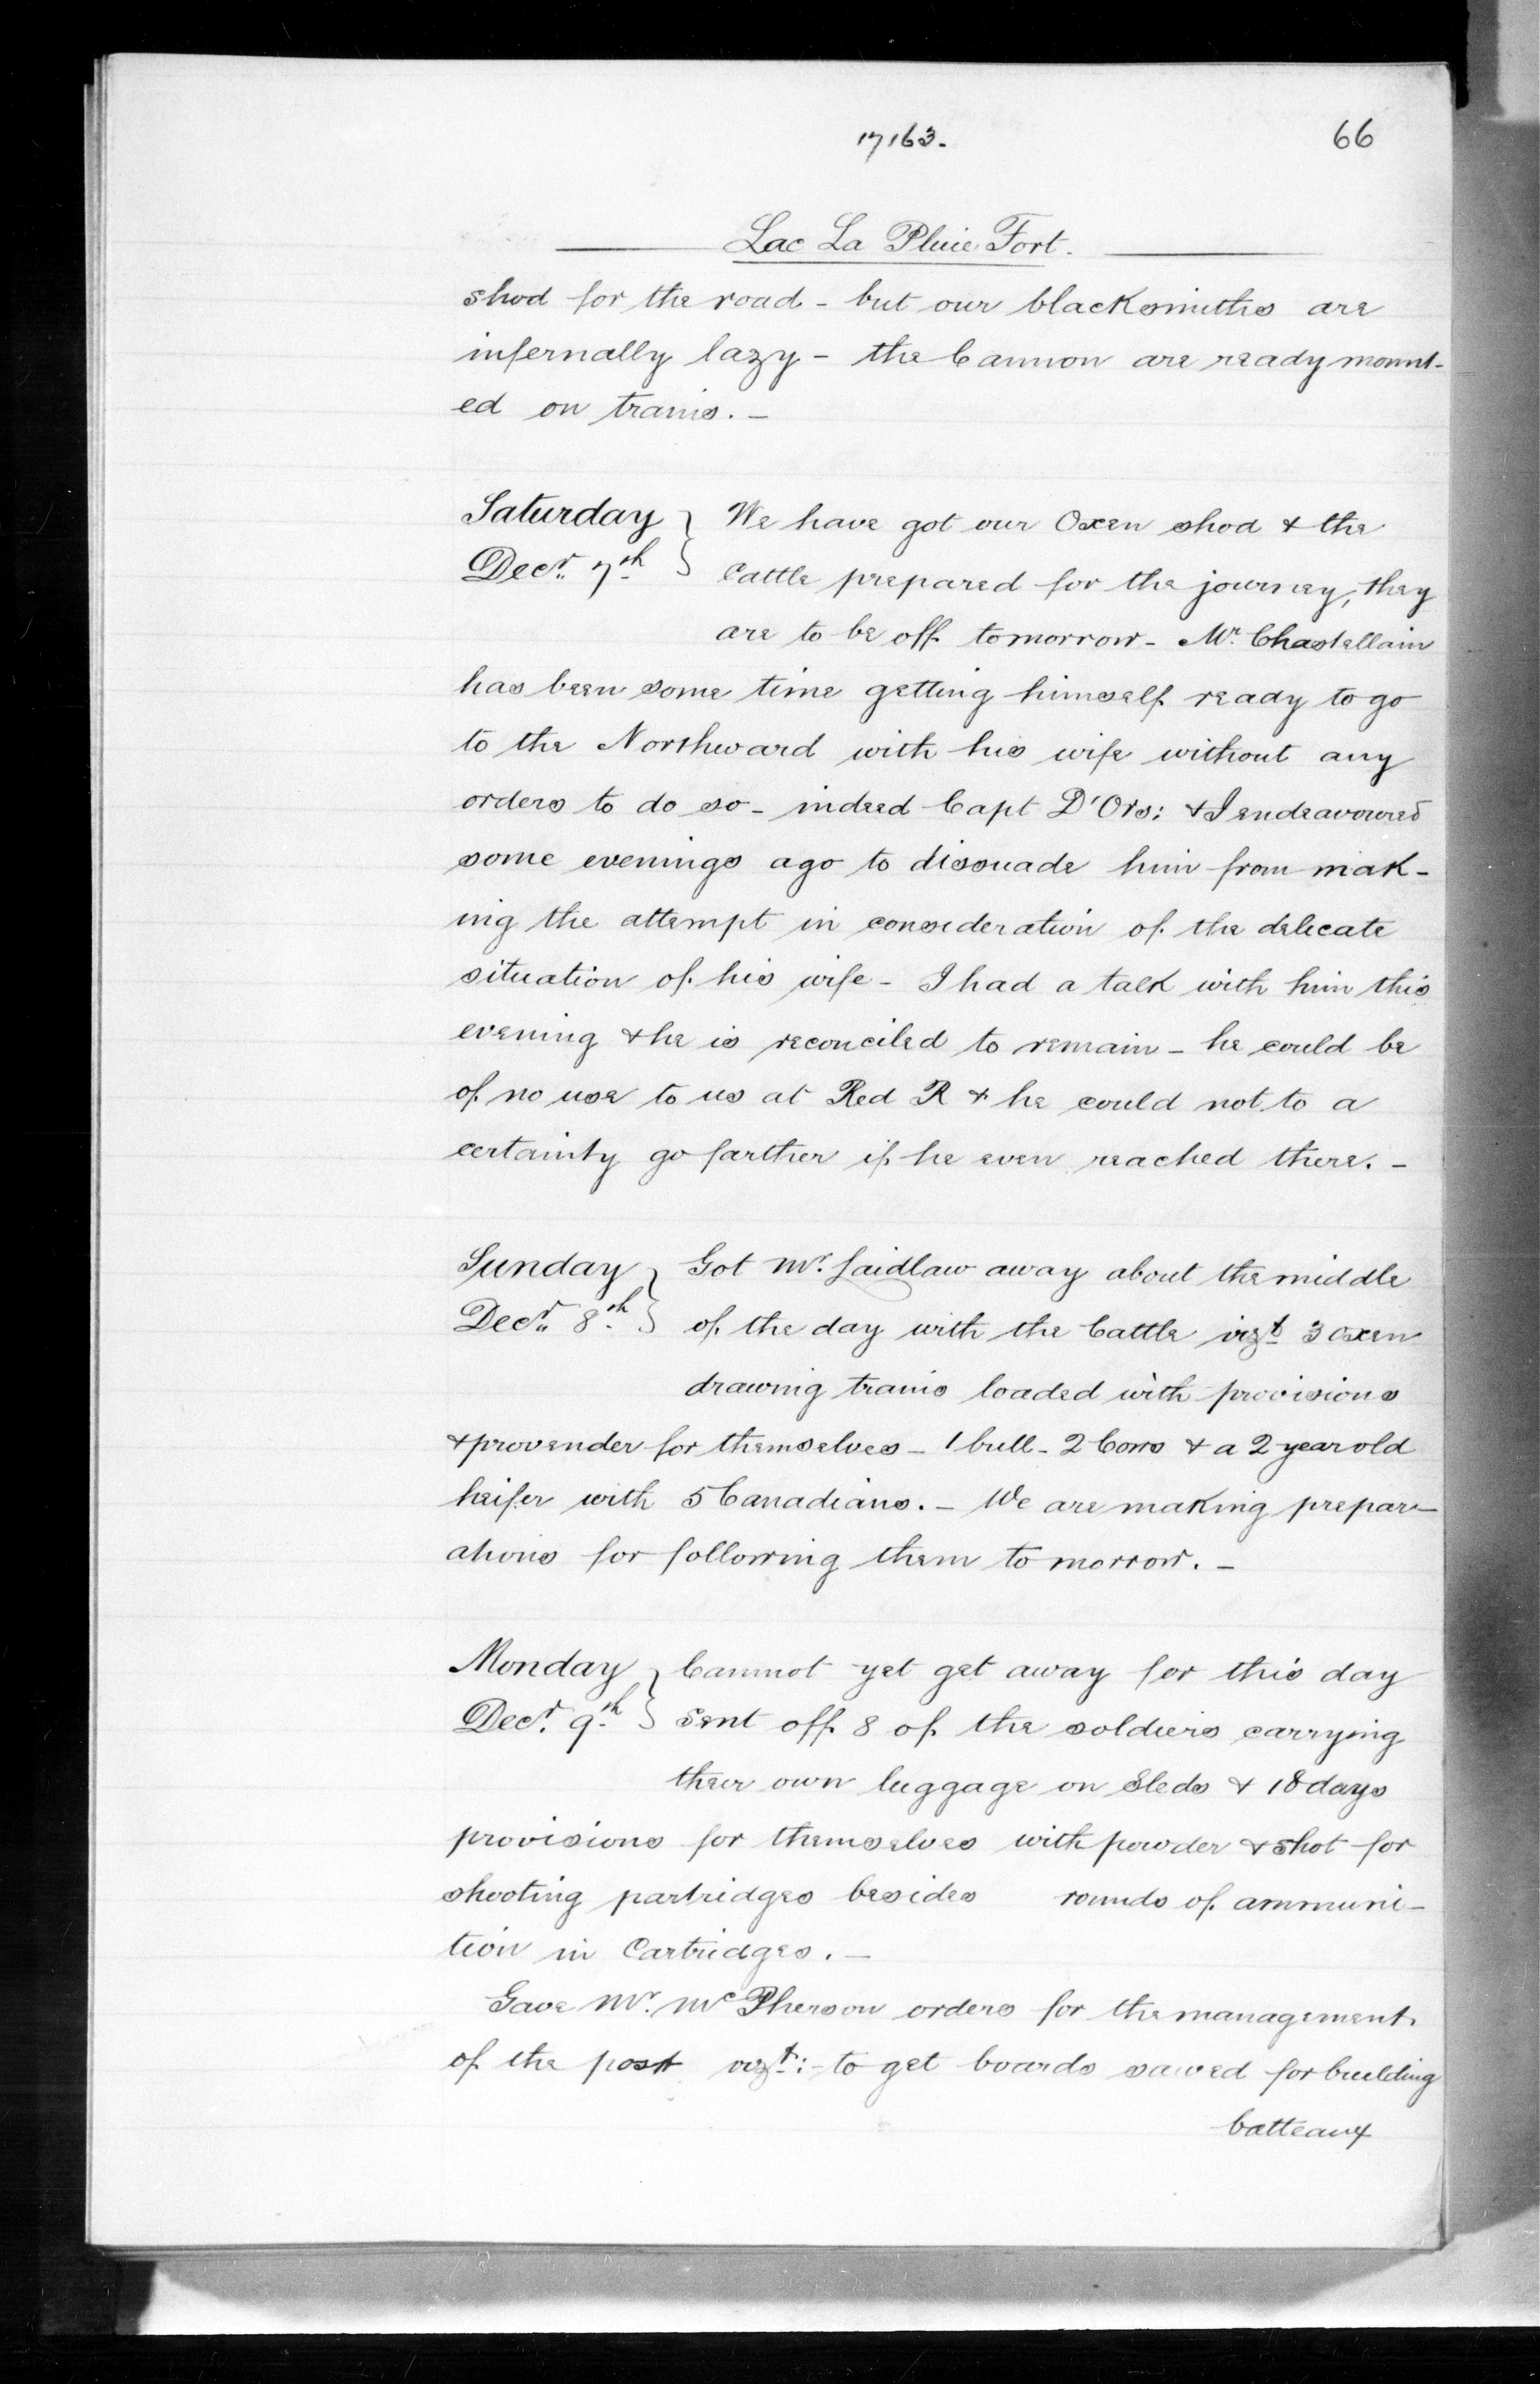 17163.
66
Lac La Pluie Fort.
shod for the road - but our blacksmiths are
infernally lazy - the Cannon are ready mount-
ed on trains. -
Saturday } We have got our Oxen shod & the
Decr. 7th } Cattle prepared for the journey, they
are to be off tomorrow - Mr. Chastellain
has been some time getting himself ready to go
to the Northward with his wife without any
orders to do so - indeed Capt D'Ors: & I endeavoured
some evenings ago to dissuade him from mak-
ing the attempt in consideration of the delicate
situation of his wife - I had a talk with him this
evening & he is reconciled to remain - he could be
of no use to us at Red R & he could not to a
certainty go farther if he even reached there. -
Sunday } Got Mr. Laidlaw away about the middle
Decr. 8th } of the day with the Cattle vizt 3 oxen
drawing trains loaded with provisions
& provender for themselves - 1 bull - 2 Cows & a 2 year old
heifer with 5 Canadians. - We are making prepar-
ations for following them to morrow. -
Monday } Cannot yet get away for this day
Decr. 9th } Sent off 8 of the soldiers carrying
their own luggage on Sleds & 18 days
provisions for themselves with powder & shot for
shooting partridges besides rounds of ammuni-
tion in Cartridges. -
Gave Mr. McPherson orders for the management
of the post vizt: - to get boards sawed for building
batteaux